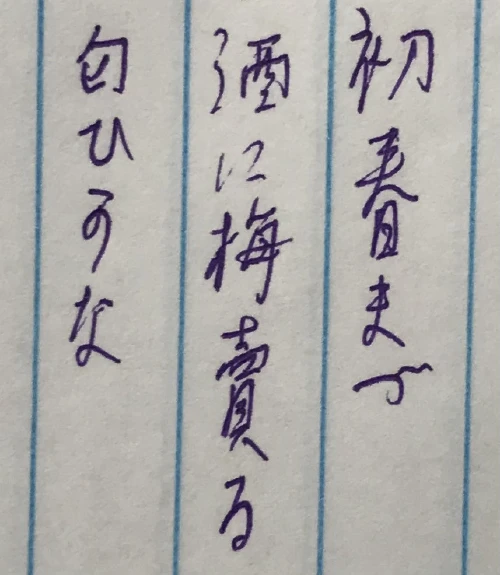 初春まづ
酒に梅賣る
匂ひかな